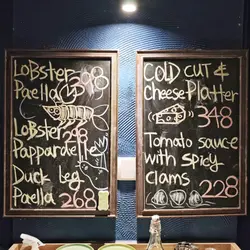 LOBSTER
Paella 398
Lobster 298
Pappardelle
Duck leg
Paella 268
COLD CUT &
cheese Platter
348
Tomato sauce
with spicy
clams 228